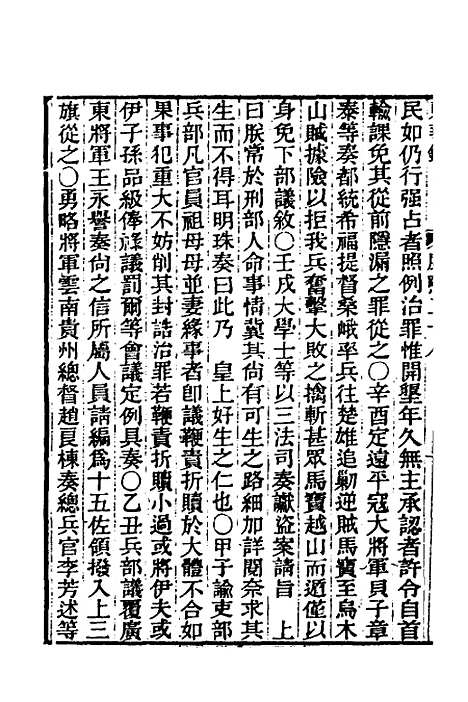 民如仍行强占者照例治罪惟開墾年久無主承認者許令自首
輸課免其從前隱漏之罪從之〇辛酉定遠平寇大將軍貝子章
泰等奏都統希福提督桑峨平兵往楚雄追勦逆賊馬寶至烏木
山賊據險以拒我兵奮擊大敗之擒斬甚眾馬寶越山而遁僅以
身免下部議敘〇壬戌大學士等以三法司奏讞盜案請旨　上
曰朕常於刑部人命事情冀其尚有可生之路細加詳閱奈求其
生而不得耳明珠奏曰此乃　皇上好生之仁也〇甲子諭吏部
兵部凡官員祖母母並妻緣事者卽議鞭責折贖於大體不合如
果事犯重大不妨削其封誥治罪若鞭責折贖小過或將伊夫或
伊子孫品級俸祿議罰爾等會議定例具奏〇乙丑兵部議覆廣
東將軍王永譽奏尚之信所屬人員請編爲十五佐領撥入上三
旗從之〇勇略將軍雲南貴州總督趙良棟奏總兵官李芳述等